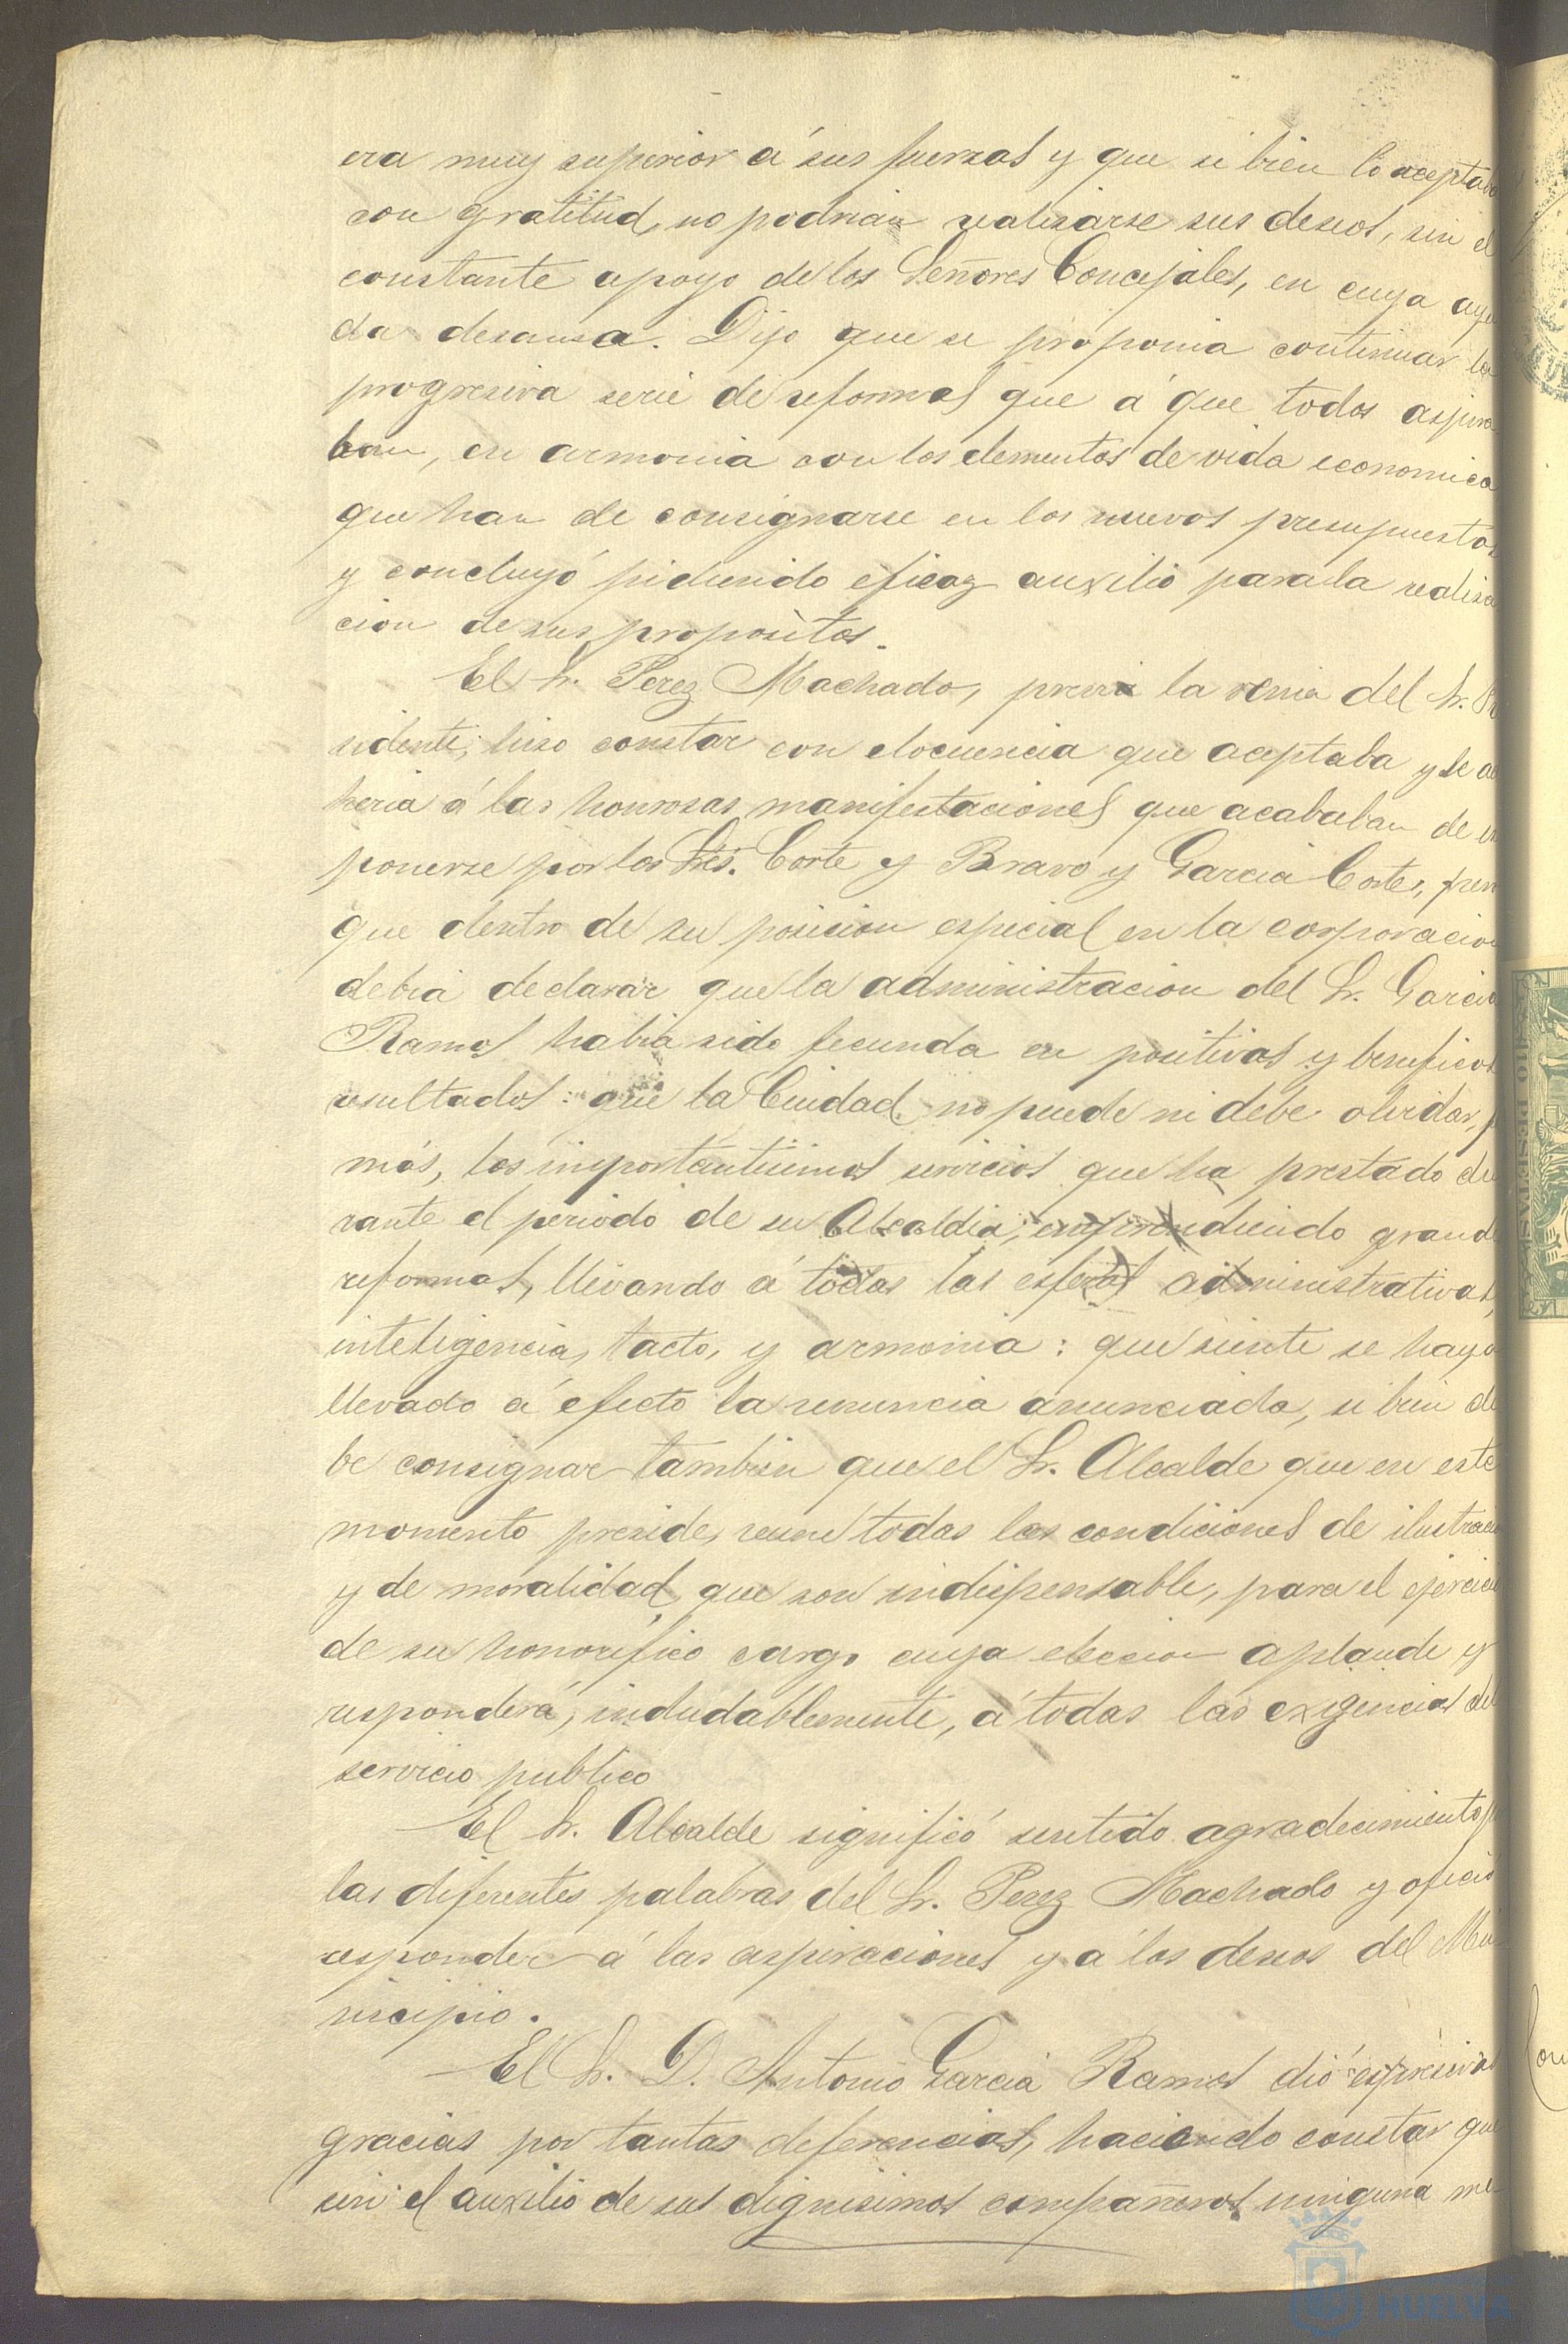 era muy superior á sus fuerzas y que si bien lo aceptaba
con gratitud, no podrian realizarse sus deseos, sin el
constante apoyo de los Señores Concejales, en cuya ayu
da descansa. Dijo que se proponia continuar la
progresiva serie de reformas que á que todos aspira
ban, en armonia con los elementos de vida economica
que han de consignarse en los nuevos presupuestos
y concluyó pidiendo eficaz auxilio para la realiza
cion de sus propositos.
El Sr. Perez Machado, previa la venia del Sr. Pre
sidente, hizo constar con elocuencia que aceptaba y se ad
heria á las honrosas manifestaciones que acababan de ex
ponerse por los Sres. Corte y Bravo y Garcia Cortes, pero
que dentro de su posicion especial en la corporacion
debia declarar que la administracion del Sr. Garcia
Ramos habia sido fecunda en positivos y beneficos
resultados: que la Ciudad no puede ni debe olvidar, ja
más, los importantisimos servicios que ha prestado du
rante el periodo de su Alcaldia, emprendiendo grandes
reformas, llevando á todas las esferas administrativas,
inteligencia, tacto, y armonia: que siente se haya
llevado á efecto la renuncia anunciada, si bien de
be consignar tambien que el Sr. Alcalde que en este
momento preside, reune todas las condiciones de ilustracion
y de moralidad que son indispensable, para el ejercicio
de su honorifico cargo cuya eleccion aplaude y
responderá, indudablemente, á todas las exigencias del
servicio publico
El Sr. Alcalde significó sentido agradecimiento p
las diferentes palabras del Sr. Perez Machado y ofreció
responder á las aspiraciones y á los deseos del Mu
nicipio.
El Sr. D. Antonio Garcia Ramos dió expresivas
gracias por tantas deferencias, haciendo constar que
sin el auxilio de sus dignisimos compañeros ninguna me
HUELVA